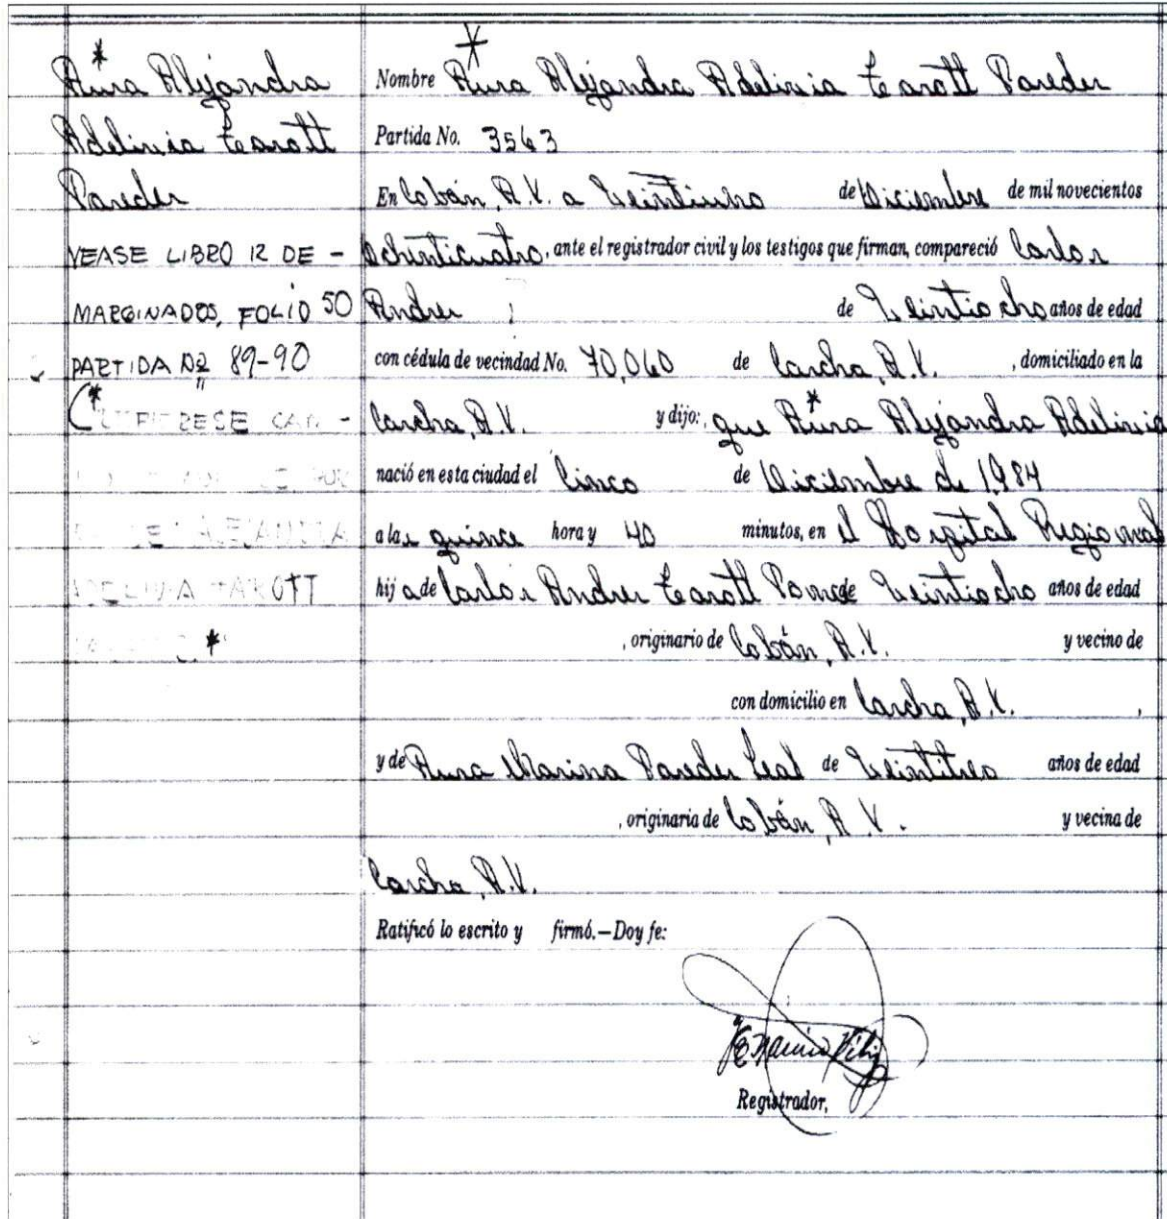 Aura Alejandra
Adelinia Tarott
Paredes
VEASE LIBRO 12 DE -
MARGINADOS, FOLIO 50
PARTIDA No 89-90
ADELINIA TAROTT
Nombre Aura Alejandra Adelinia Tarott Paredes
Partida No. 3563
En Cobán, A.V. a Veintiocho de Diciembre de mil novecientos
Ochenticuatro, ante el registrador civil y los testigos que firman, compareció Carlos
Andres de Veintiocho años de edad
con cédula de vecindad No. 70,060 de Carcha, A.V. , domiciliado en la
Carcha, A.V. y dijo: que Aura Alejandra Adelinia
nació en esta ciudad el Cinco de Diciembre de 1984
a las quince hora y 40 minutos, en el Hospital Regional
hij a de Carlos Andres Tarott Ponce de Veintiocho años de edad
, originario de Cobán, A.V. y vecino de
con domicilio en Carcha, A.V. ,
y de Aura Marina Paredes Leal de Veintitres años de edad
, originaria de Cobán, A.V. y vecina de
Carcha, A.V.
Ratificó lo escrito y firmó.—Doy fe:
Registrador,